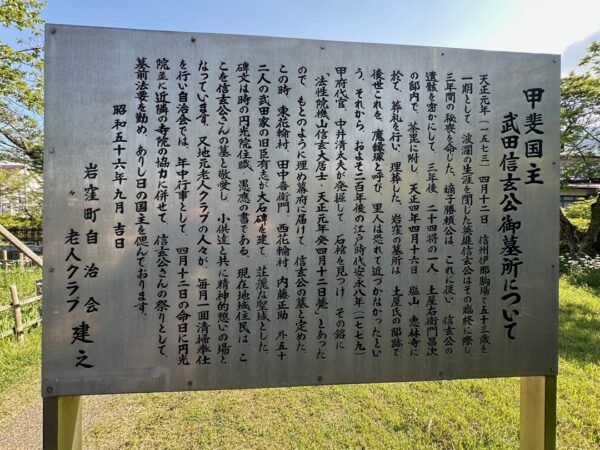 甲斐国主
武田信玄公御墓所について
天正元年（一五七三）四月十二日 信州伊那駒場で五十三歳を
一期として、波瀾の生涯を閉じた英雄信玄公はその臨終に際し
三年間の秘喪を命じた。嫡子勝頼公は、これに従い、信玄公の
遺骸を密かにして、三年後、二十四将の一人 土屋右衛門昌次
の邸内で、荼毘に附し、天正四年四月十六日 塩山 恵林寺に
於て、葬礼を行い、埋葬した。岩窪の墓所は、土屋氏の邸跡で
後世これを、魔縁塚と呼び、里人は恐れて近づかなかったとい
う。それから、およそ二百年後の江戸時代安永八年（一七七九）
甲府代官、中井清太夫が発掘して、石棺を見つけ、その銘に
「法性院機山信玄大居士、天正元年癸四月十二日薨」とあった
ので、もとのように埋め幕府に届けて、信玄公の墓と定めた。
この時、東花輪村 田中吾衛門 西花輪村 内藤正助 外五十
二人の武田家の旧臣有志が大石碑を建て、荘厳な聖域とした。
碑文は時の円光院住職、愚應の書である。現在地域住民は、こ
こを信玄公さんの墓と敬愛し、小供達と共に精神的憩いの場と
なっています。又地元老人クラブの人々が、毎月一回清掃奉仕
を行い自治会では、年中行事として、四月十二日の命日に円光
院並に近隣の寺院の協力に併せて、信玄公さんの祭りとして、
墓前法要を勤め、ありし日の国主を偲んでおります。
昭和五十六年九月 吉日
岩窪町自治会
〃 老人クラブ 建之